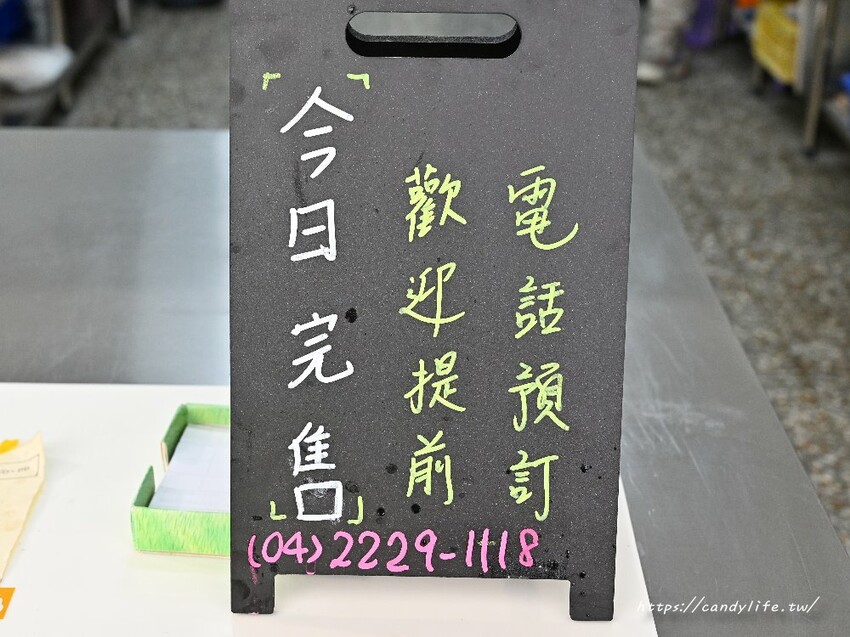 電話預訂
歡迎提前
今日完售
(04)2229-1118
https://candylife.tw/